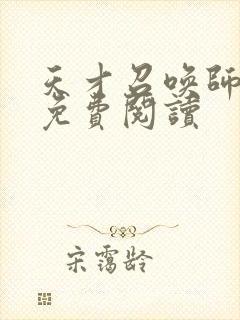 天才召喚師
免費閱讀
宋靄齡